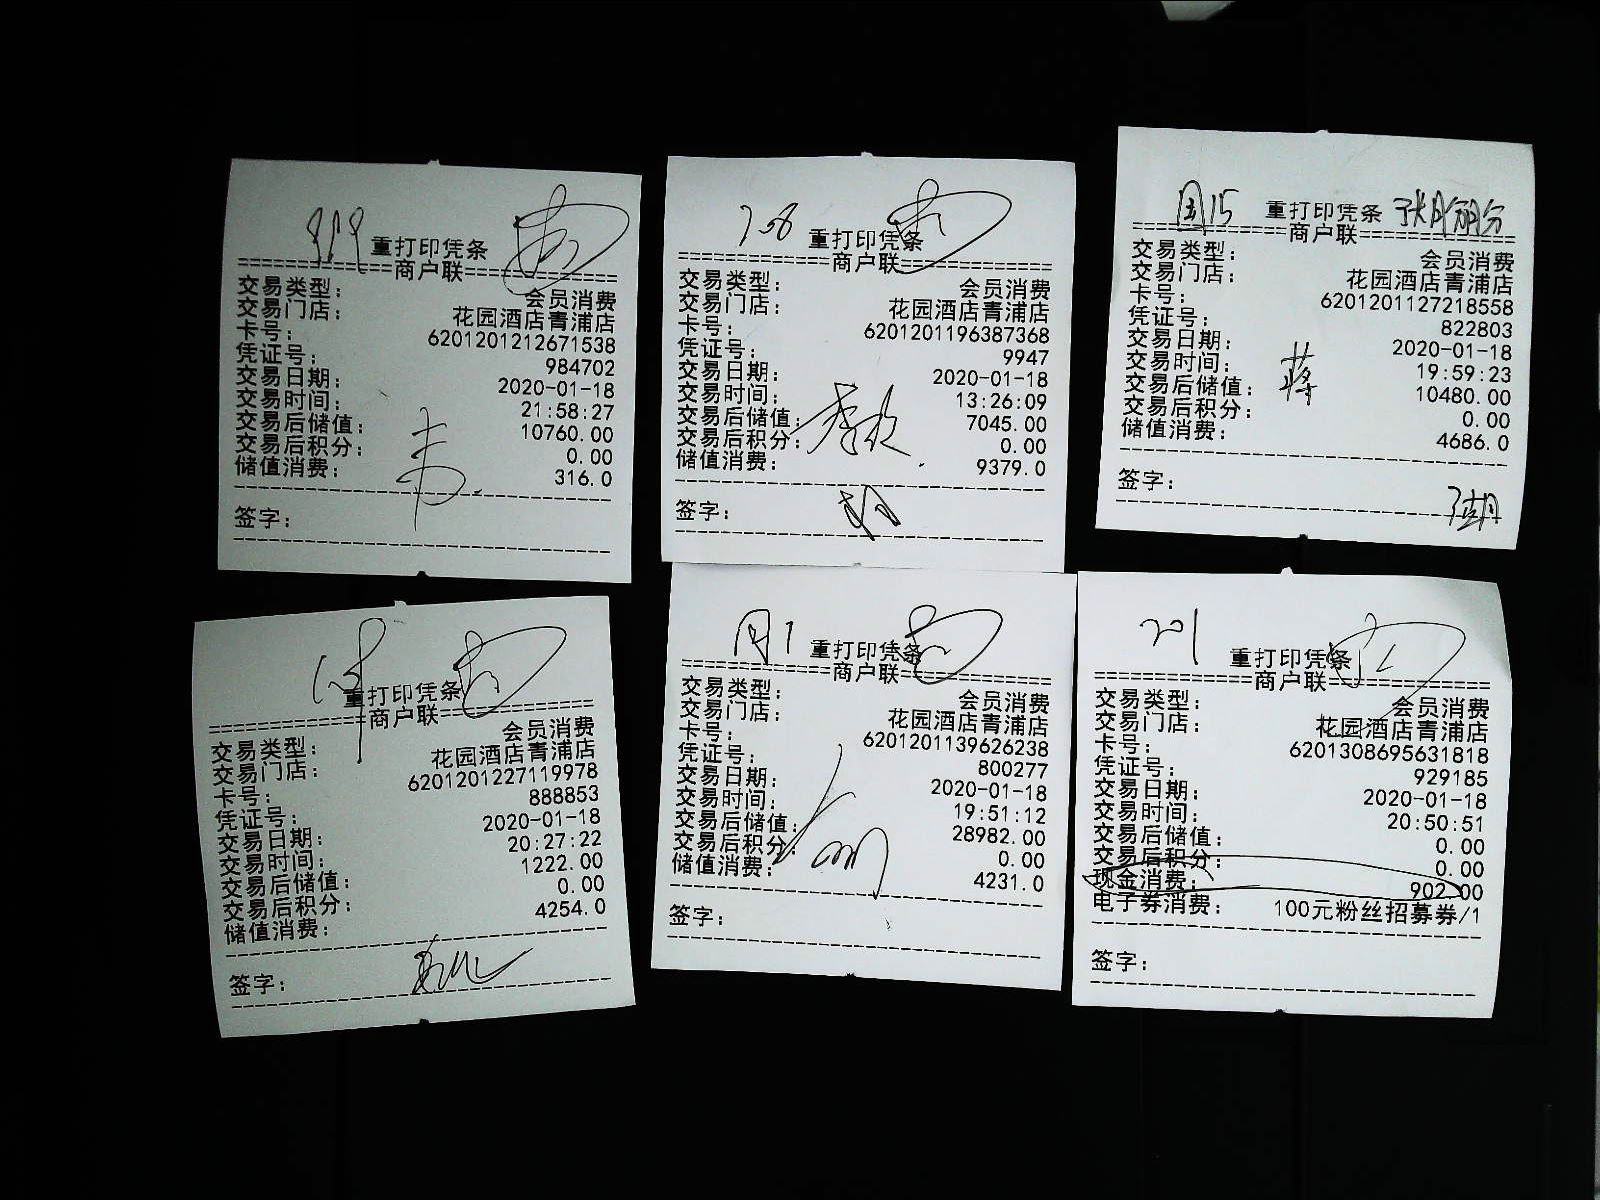 重打印凭条
==============商户联==============
交易类型： 会员消费
交易门店： 花园酒店青浦店
卡号： 6201201212671538
凭证号： 984702
交易日期： 2020-01-18
交易时间： 21:58:27
交易后储值： 10760.00
交易后积分： 0.00
储值消费： 316.0
签字：
758 重打印凭条
==============商户联==============
交易类型： 会员消费
交易门店： 花园酒店青浦店
卡号： 6201201196387368
凭证号： 9947
交易日期： 2020-01-18
交易时间： 13:26:09
交易后储值： 7045.00
交易后积分： 0.00
储值消费： 9379.0
签字：
国15 重打印凭条
==============商户联==============
交易类型： 会员消费
交易门店： 花园酒店青浦店
卡号： 6201201127218558
凭证号： 822803
交易日期： 2020-01-18
交易时间： 19:59:23
交易后储值： 10480.00
交易后积分： 0.00
储值消费： 4686.0
蒋
签字：
重打印凭条
==============商户联==============
交易类型： 会员消费
交易门店： 花园酒店青浦店
卡号： 6201201227119978
凭证号： 888853
交易日期： 2020-01-18
交易时间： 20:27:22
交易后储值： 1222.00
交易后积分： 0.00
储值消费： 4254.0
签字：
重打印凭条
==============商户联==============
交易类型： 会员消费
交易门店： 花园酒店青浦店
卡号： 6201201139626238
凭证号： 800277
交易日期： 2020-01-18
交易时间： 19:51:12
交易后储值： 28982.00
交易后积分： 0.00
储值消费： 4231.0
签字：
201 重打印凭条
==============商户联==============
交易类型： 会员消费
交易门店： 花园酒店青浦店
卡号： 6201308695631818
凭证号： 929185
交易日期： 2020-01-18
交易时间： 20:50:51
交易后储值： 0.00
交易后积分： 0.00
现金消费： 902.00
电子券消费： 100元粉丝招募券/1
签字：